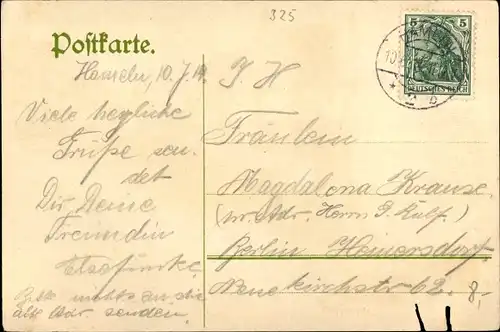 325
Postkarte.
5 5
DEUTSCHES REICH
HAMELN
Hameln, 10.7.19
Viele herzliche
Grüße sen-
det
Dir Deine
Freundin
Bitte nichts an die
alte Adr. senden.
I H
Fräulein
Magdalena Krause
(pr. Adr. Herrn G. Kulf.)
Berlin Heinersdorf
Neukirchstr 62.